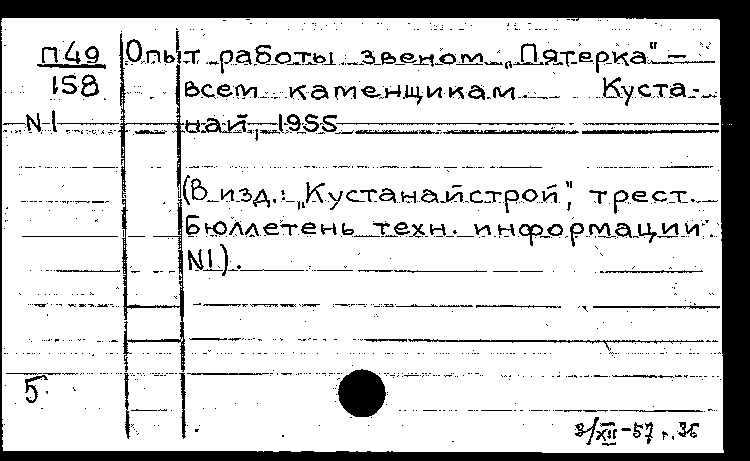 П49 Опыт работы звеном „Пятерка" –
158 всем каменщикам. Куста-
N1 най, 1955
(В изд.: „Кустанайстрой", трест.
Бюллетень техн. информации
N1).
5.
3/XII-57 г.